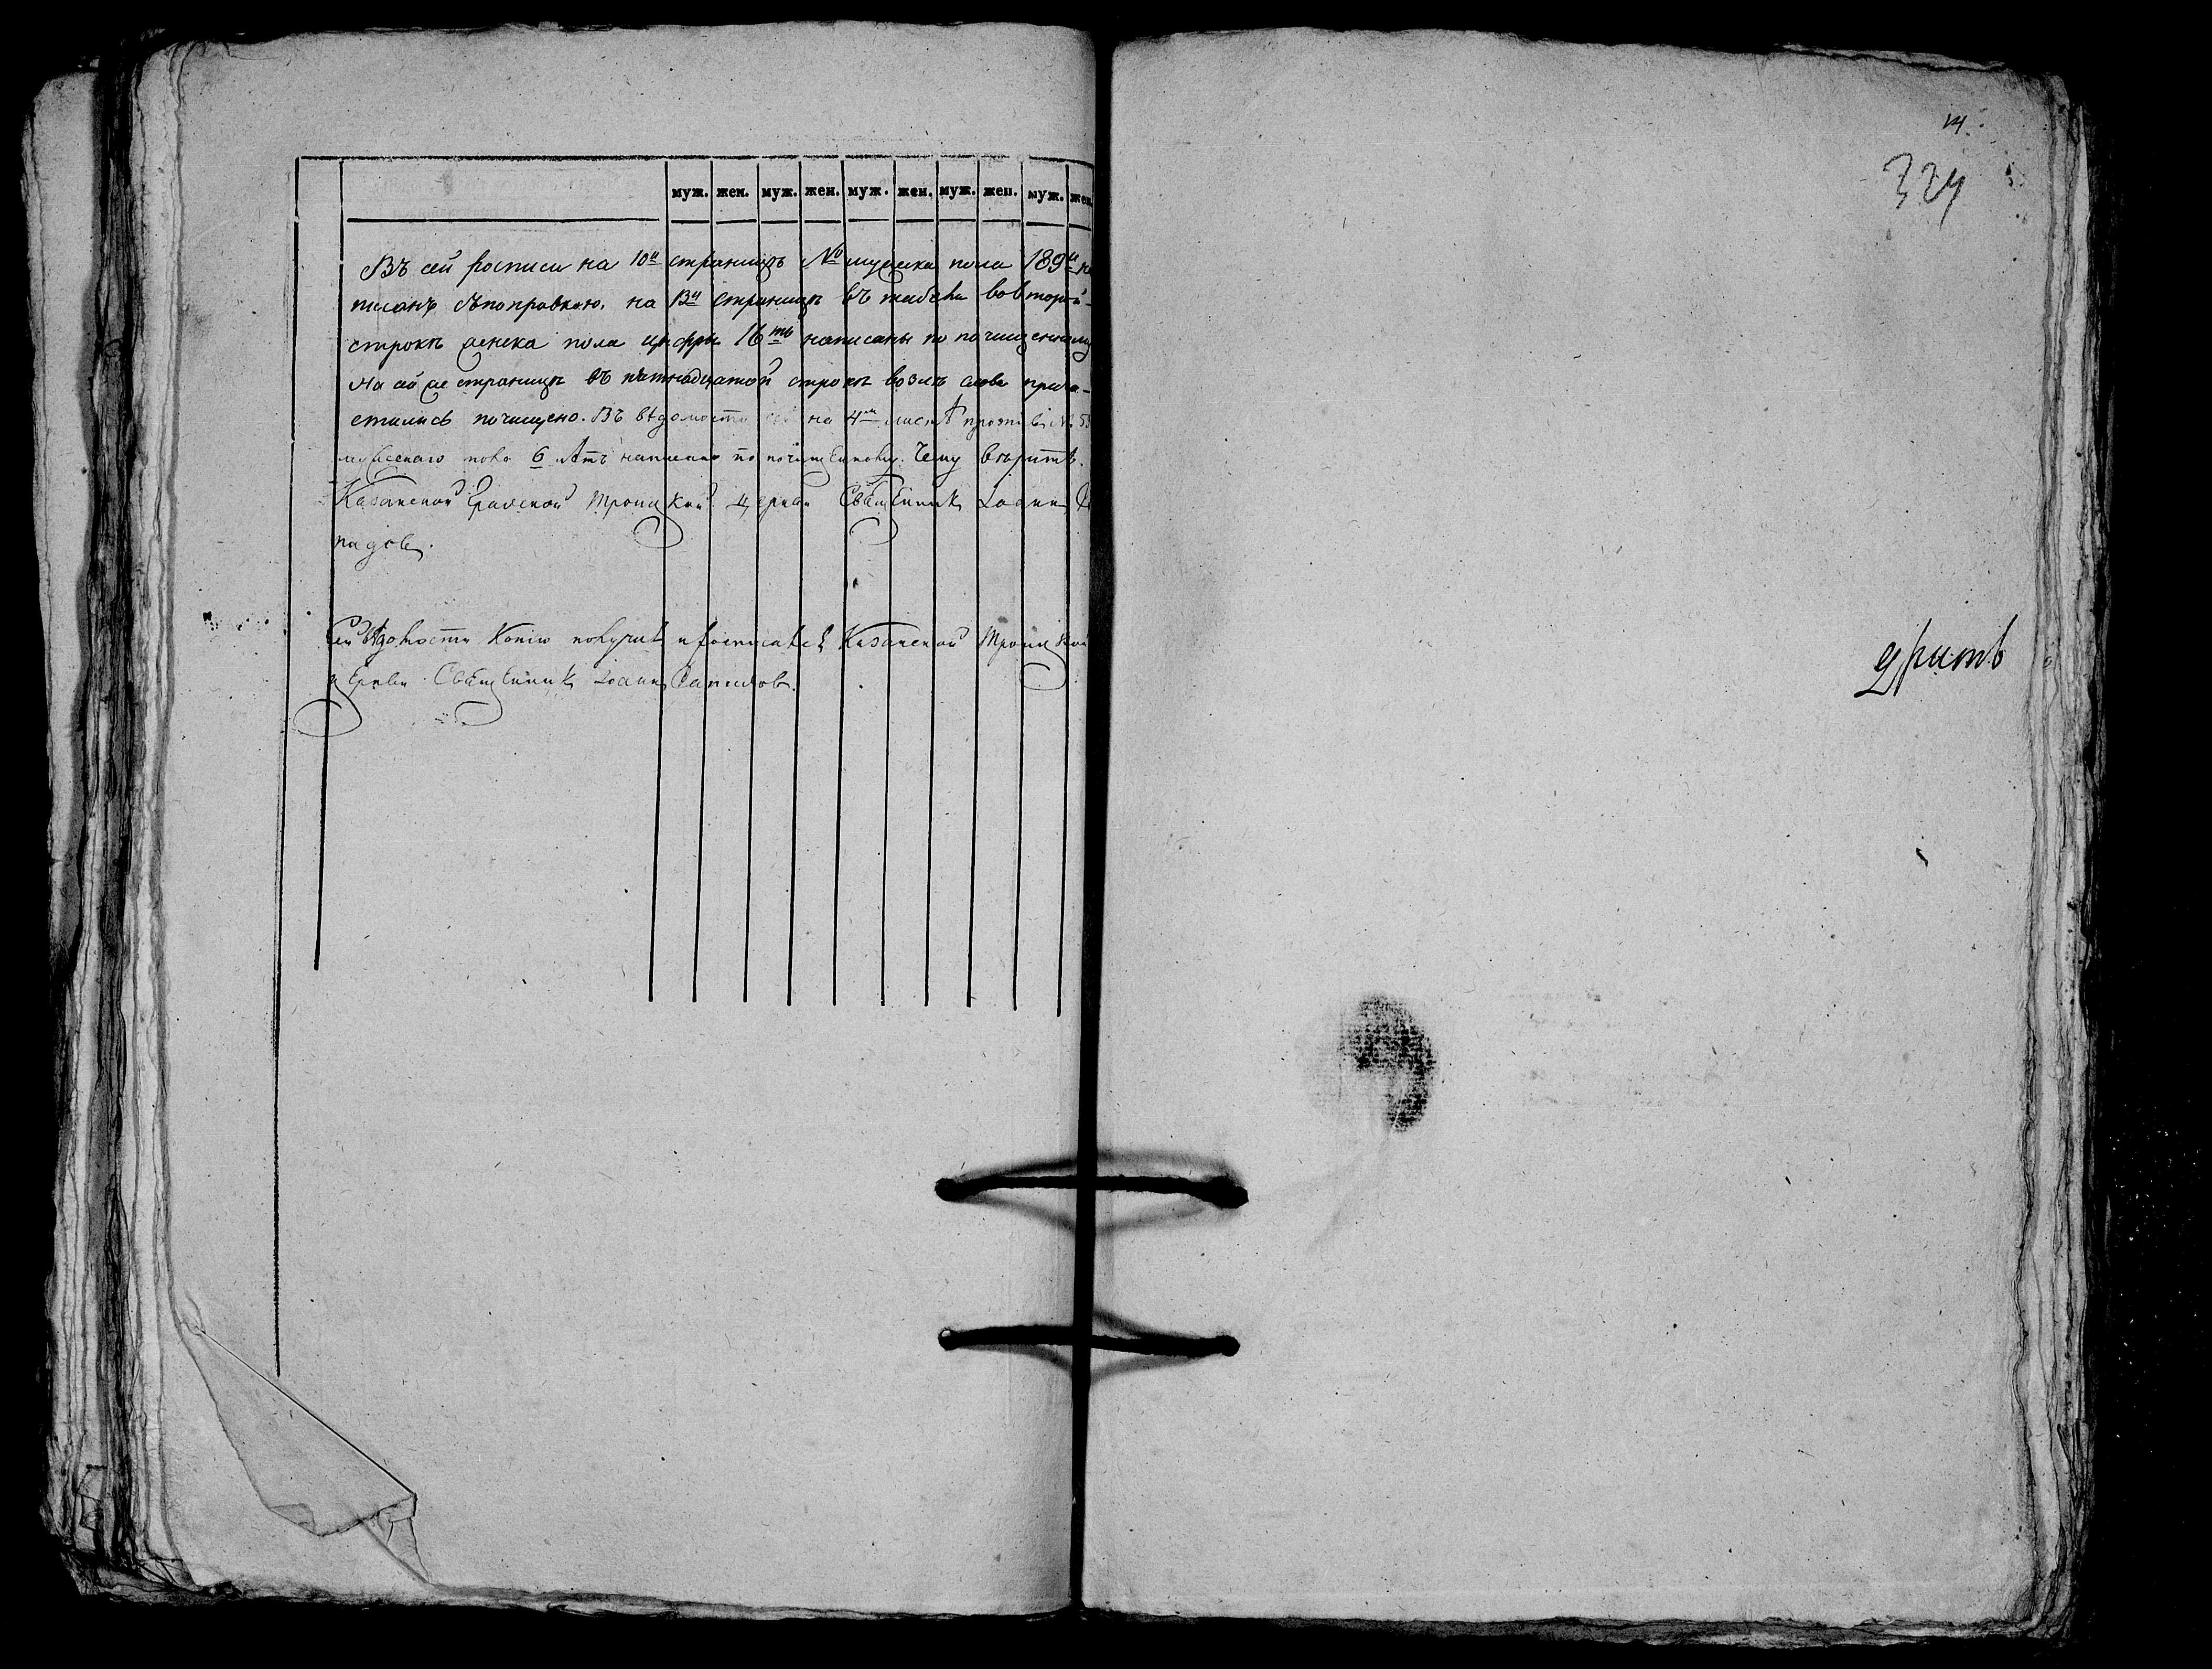 муж. жен. муж. жен. муж. жен. муж. жен. муж. жен.
Въ сей росписи на 10й страницѣ № мужеска пола 189й на
писанъ съ поправкою. на 13й страницѣ въ табели во второй
строкѣ женска пола цыфры 16ть написаны по почищенному
на ей же страницѣ въ пятнадцатой строкѣ возлѣ слова прича-
стились почищено. Въ вѣдомости на 4м листѣ противъ № 5
мужескаго пола 6 лѣтъ написано по почищенному. Чему вѣрить.
Казанской Градской Троицкой церкви Священникъ Іоаннъ
падовъ.
Сей Вѣдомости Копію получилъ и росписался Казанской Троицкой
церкви Священникъ Іоаннъ
14.
324